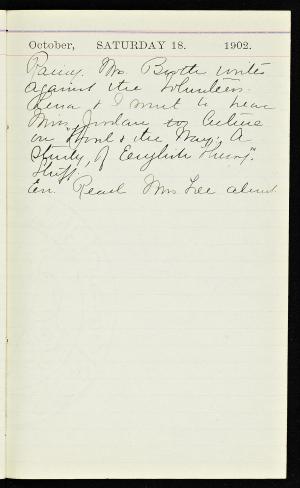 October, SATURDAY 18. 1902.
Rainy. Mrs. Booth writes
against the Volunteers.
Lena & I went to hear
Miss Jordan lecture
on the Way. A
Study of English Prisons".
Stuff.
Ev. Read Mrs Lee aloud